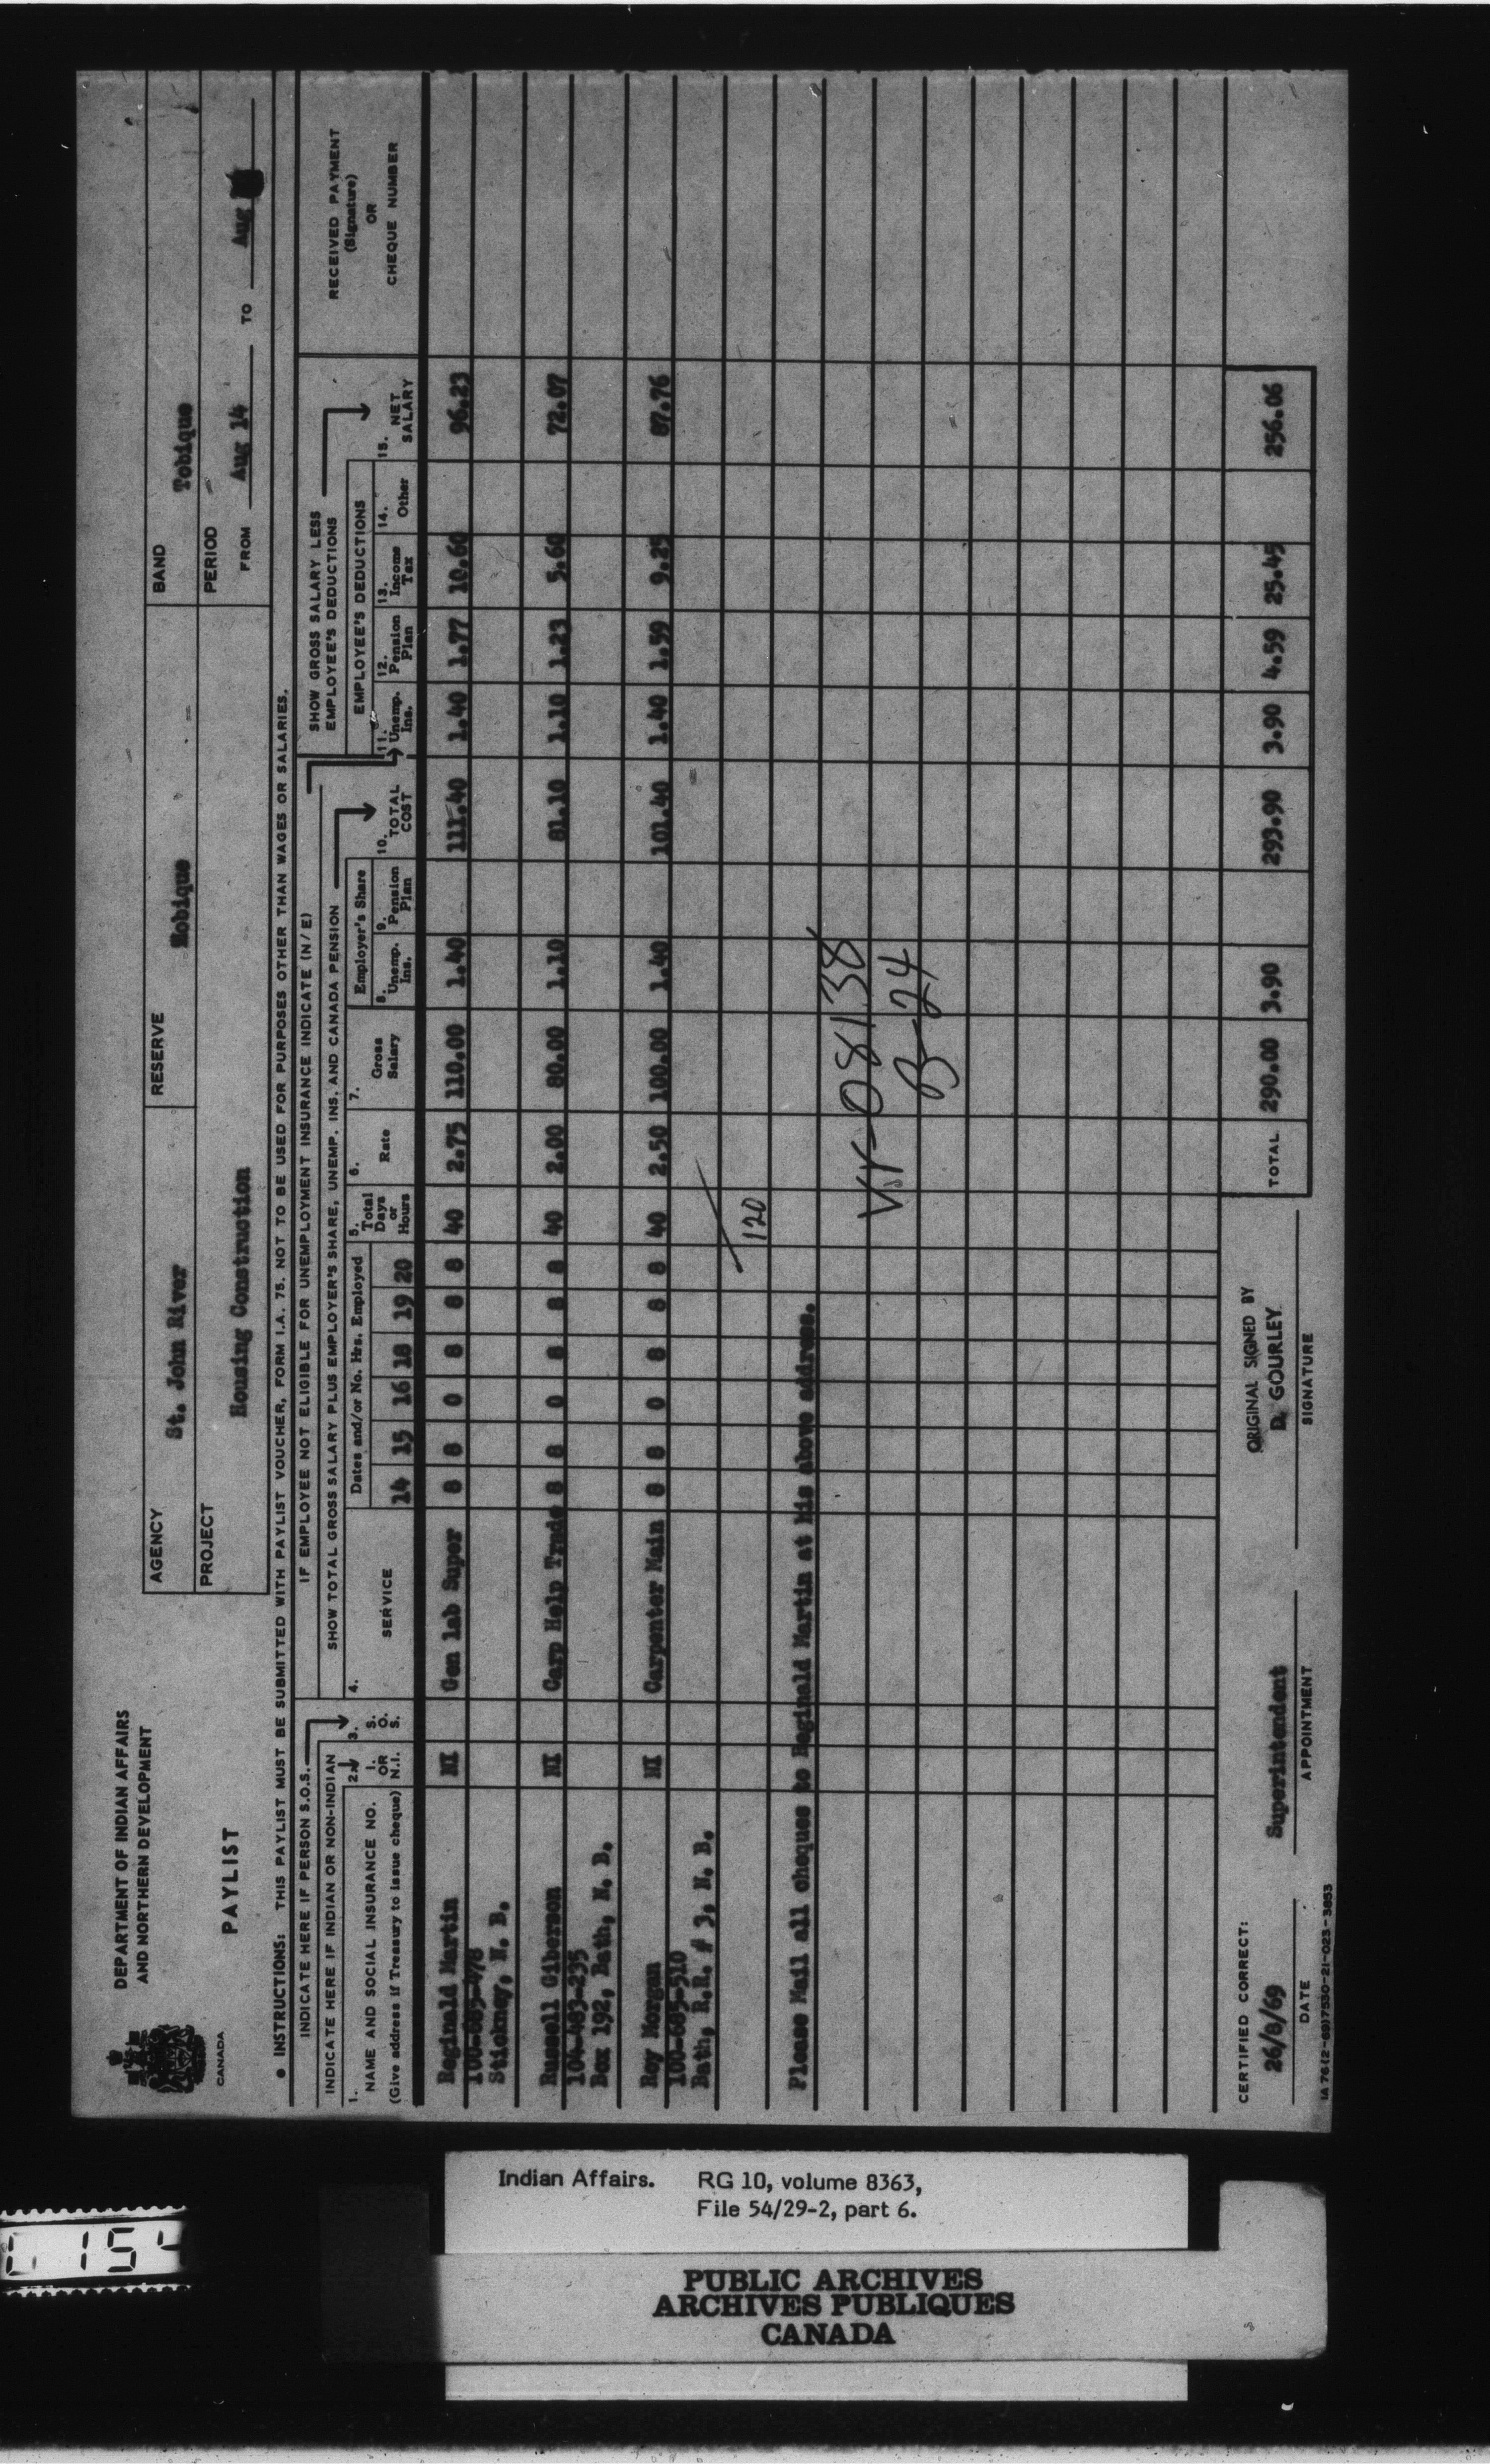 DEPARTMENT OF INDIAN AFFAIRS
AND NORTHERN DEVELOPMENT
CANADA
PAYLIST
AGENCY St. John River RESERVE Mobique BAND Tobique
PROJECT Housing Construction PERIOD FROM Aug 14 TO Aug
• INSTRUCTIONS: THIS PAYLIST MUST BE SUBMITTED WITH PAYLIST VOUCHER, FORM I.A. 75. NOT TO BE USED FOR PURPOSES OTHER THAN WAGES OR SALARIES.
INDICATE HERE IF PERSON S.O.S. IF EMPLOYEE NOT ELIGIBLE FOR UNEMPLOYMENT INSURANCE INDICATE (N/E)
INDICATE HERE IF INDIAN OR NON-INDIAN SHOW TOTAL GROSS SALARY PLUS EMPLOYER'S SHARE, UNEMP. INS. AND CANADA PENSION
SHOW GROSS SALARY LESS
EMPLOYEE'S DEDUCTIONS
1. NAME AND SOCIAL INSURANCE NO.
(Give address if Treasury to issue cheque)
2. I. OR N.I.
3. S. O. S.
4. SERVICE
Dates and/or No. Hrs. Employed
14 15 16 18 19 20
5. Total Days or Hours
6. Rate
7. Gross Salary
Employer's Share
8. Unemp. Ins.
9. Pension Plan
10. TOTAL COST
EMPLOYEE'S DEDUCTIONS
11. Unemp. Ins.
12. Pension Plan
13. Income Tax
14. Other
15. NET SALARY
RECEIVED PAYMENT
(Signature)
OR
CHEQUE NUMBER
Reginald Martin NI Gen lab Super 8 8 0 8 8 8 40 2.75 110.00 1.40 111.40 1.40 1.77 10.60 96.23
Stickney, N. B.
Russell Giberson NI Carp Help Trade 8 8 0 8 8 8 40 2.00 80.00 1.10 81.10 1.10 1.23 5.60 72.07
104-483-235
Box 192, Bath, N. B.
Roy Morgan NI Carpenter Main 8 8 0 8 8 8 40 2.50 100.00 1.40 101.40 1.40 1.59 9.25 87.76
100-685-510
Bath, R.R. # 3, N. B.
120
Please Mail all cheques to Reginald Martin at his above address.
Vr-08138
B-24
TOTAL 290.00 3.90 293.90 3.90 4.59 25.45 256.06
CERTIFIED CORRECT:
26/8/69 Superintendent ORIGINAL SIGNED BY
D. GOURLEY
DATE APPOINTMENT SIGNATURE
IA 76 (2-69) 7530-21-023-3853
Indian Affairs. RG 10, volume 8363,
File 54/29-2, part 6.
154
PUBLIC ARCHIVES
ARCHIVES PUBLIQUES
CANADA